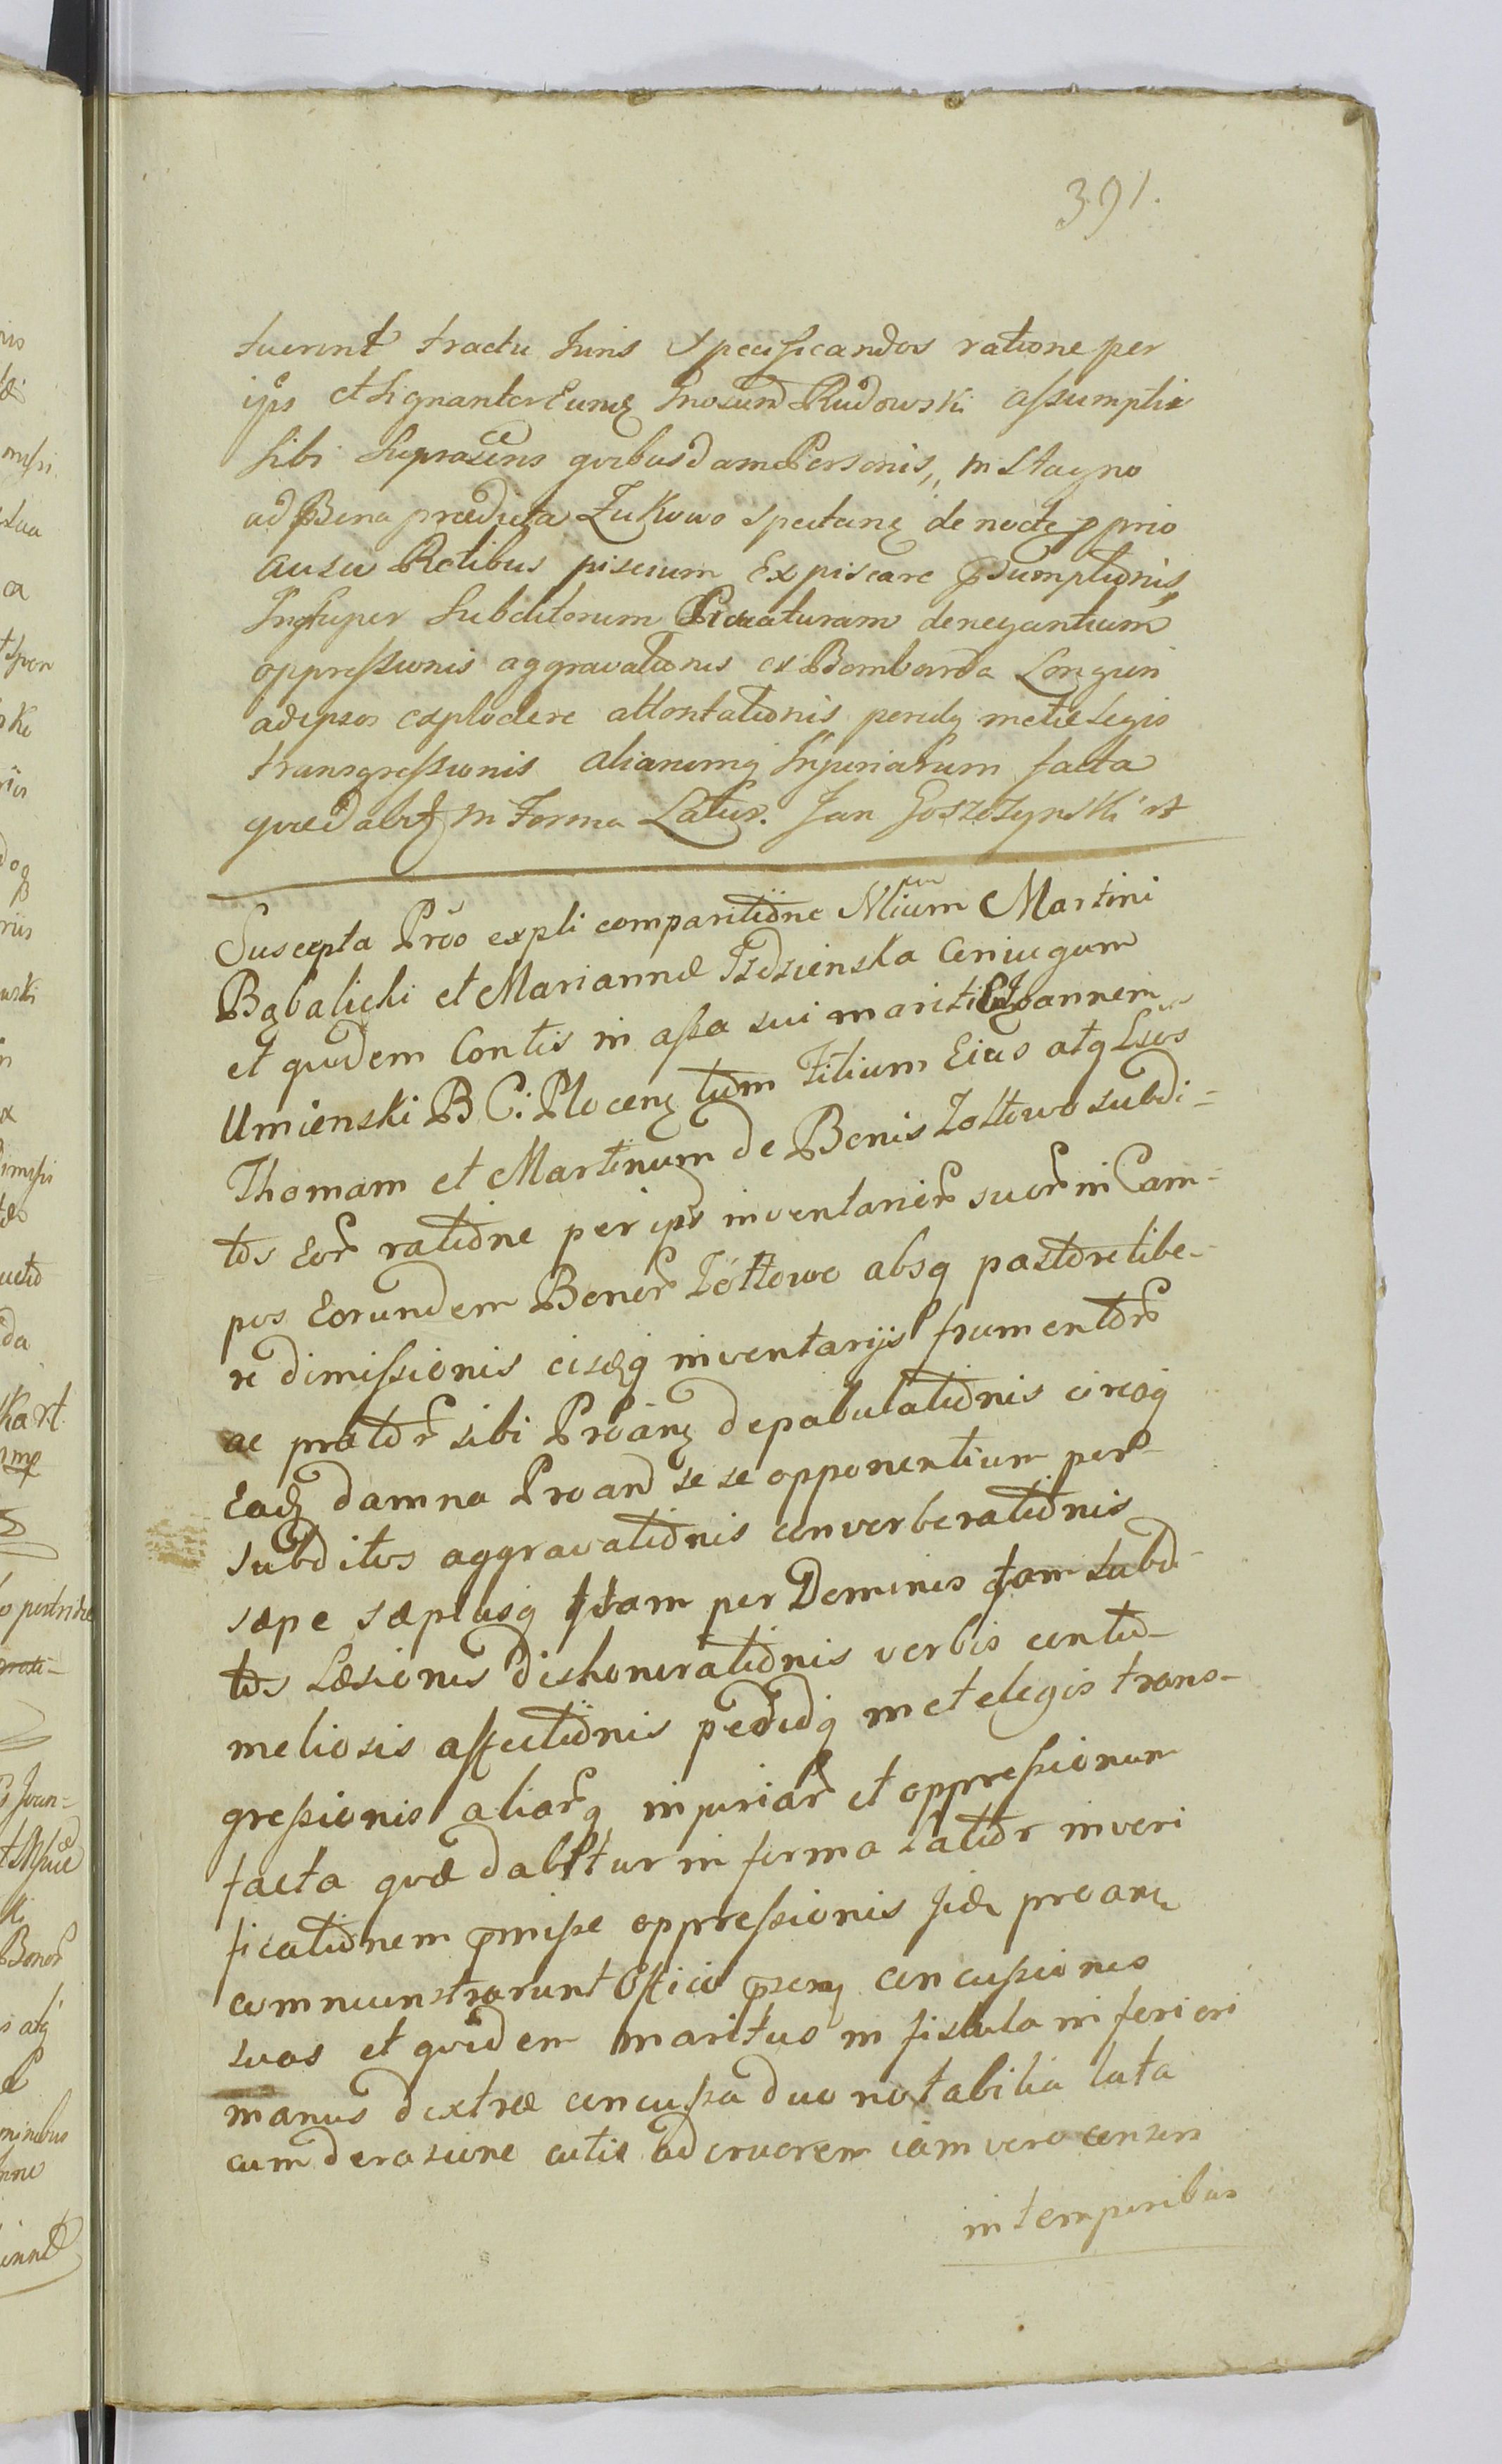 391.
tuerint tractu Juris specificandos ratione per
ips et signanter Eund Gnosum Rudowski assumptis
sibi suprascens quibusdam Personis, in stagno
ad Bona prædicta Zukowo spectan de nocte pprio
ausu Retibus piscium Expiscare psumptionis,
Insuper Subditorum denegantium
oppressionis aggravationis ex Bombarda Longiori
ad ipsos explodere attontationis penulq metæ legis
transgressionis aliarumq Injuriarum facta
quæ dabit in Forma Latius. Jan Goszczynski
Suscepta Pròo expli comparitione Nlium Martini
Bąbalicki et Mariannæ Conjugum
et quidem Contis in assa sui mariti G Joannem
Umienski B C: Plocen tum Filium Eius atq Lsos
Thomam et Martinum de Bonis Zoltowo subdi-
tos Eor ratione per ips inventarior suor in Cam-
pos Eorundem Bonor Zołtowo absq pastore libe-
re dimissionis eisdq inventarijs frumentor
ac prator sibi Proan depabulationis circaq
Ead damna Proand se se opponentium per
subditos aggravationis converberationis
sæpe sæpiusq tam per Dominos qam subdi-
tos Læsionis dishonorationis verbis contu-
meliosis affectionis penulq metæ legis trans-
gressionis aliarq injuriar et oppressionum
facta quæ dabitur in forma latior in veri
ficationem pmissæ oppressionis sidę proan
commonstrarunt Officio psen concussiones
suas et quidem maritus in fistula inferiori
manus dextræ concussa duo notabilia lata
cum derasione cutis ad cruorem iam vero consors
in temporibus